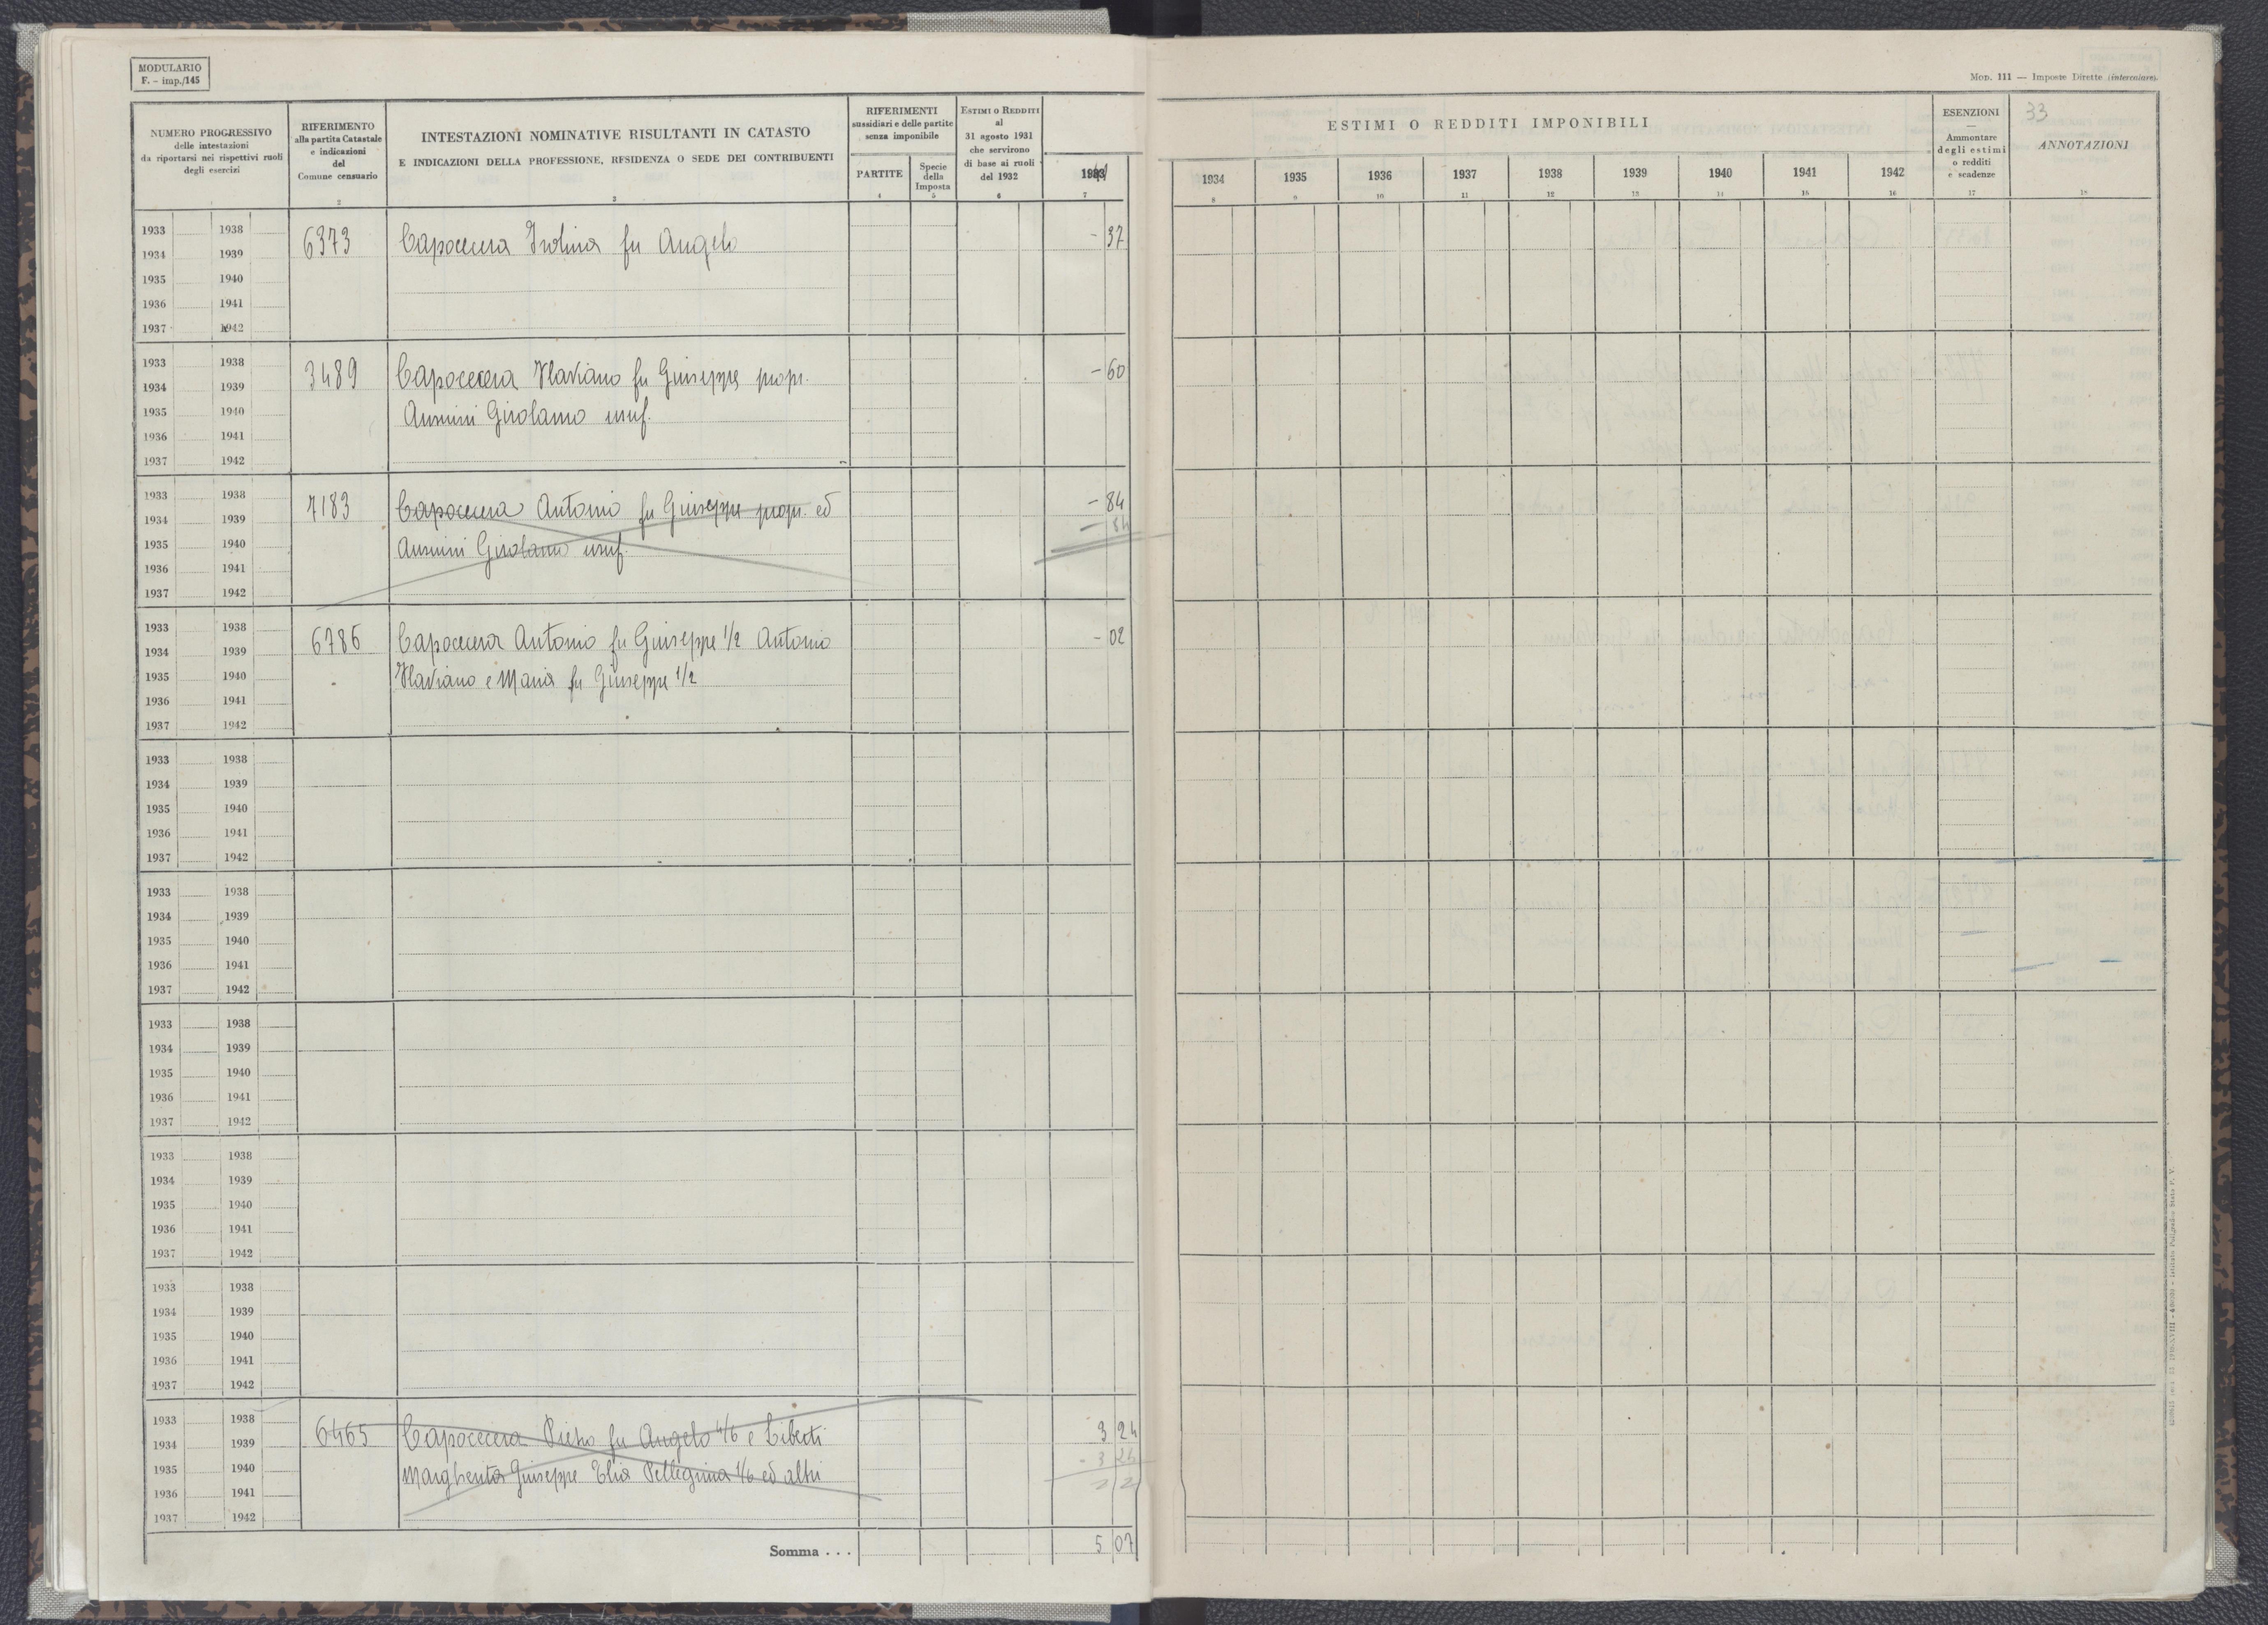 MODULARIO
F. - imp./145
Mod. 111 — Imposte Dirette (intercalare).
NUMERO PROGRESSIVO
delle intestazioni
da riportarsi nei rispettivi ruoli
degli esercizi
RIFERIMENTO
alla partita Catastale
e indicazioni
del
Comune censuario
2
INTESTAZIONI NOMINATIVE RISULTANTI IN CATASTO
E INDICAZIONI DELLA PROFESSIONE, RESIDENZA O SEDE DEI CONTRIBUENTI
3
RIFERIMENTI
sussidiari e delle partite
senza imponibile
PARTITE
4
Specie
della
Imposta
5
Estimi o Redditi
al
31 agosto 1931
che servirono
di base ai ruoli
del 1932
6
7
ESTIMI O REDDITI IMPONIBILI
1934 1935 1936 1937 1938 1939 1940 1941 1942
8 9 10 11 12 13 14 15 16
ESENZIONI
—
Ammontare
degli estimi
o redditi
e scadenze
17
33
ANNOTAZIONI
18
1933 1938
1934 1939
1935 1940
1936 1941
1937 1942
6373 Capocecera Isolina fu Angelo - 37
1933 1938
1934 1939
1935 1940
1936 1941
1937 1942
3489 Capocecera Flaviano fu Giuseppe propr. - 60
Girolamo usuf.
1933 1938
1934 1939
1935 1940
1936 1941
1937 1942
7183 Capocecera Antonio fu Giuseppe propr. ed - 84
- 84
Girolamo usuf.
1933 1938
1934 1939
1935 1940
1936 1941
1937 1942
6786 Capocecera Antonio fu Giuseppe 1/2 Antonio - 02
Flaviano e Maria fu Giuseppe 1/2
1933 1938
1934 1939
1935 1940
1936 1941
1937 1942
1933 1938
1934 1939
1935 1940
1936 1941
1937 1942
1933 1938
1934 1939
1935 1940
1936 1941
1937 1942
1933 1938
1934 1939
1935 1940
1936 1941
1937 1942
1933 1938
1934 1939
1935 1940
1936 1941
1937 1942
1933 1938
1934 1939
1935 1940
1936 1941
1937 1942
6465 Capocecera Pietro fu Angelo 4/6 e Liberti 3 24
- 3 24
Margherita Giuseppe Elia Pellegrina 1/6 ed altri
Somma . . . 5 07